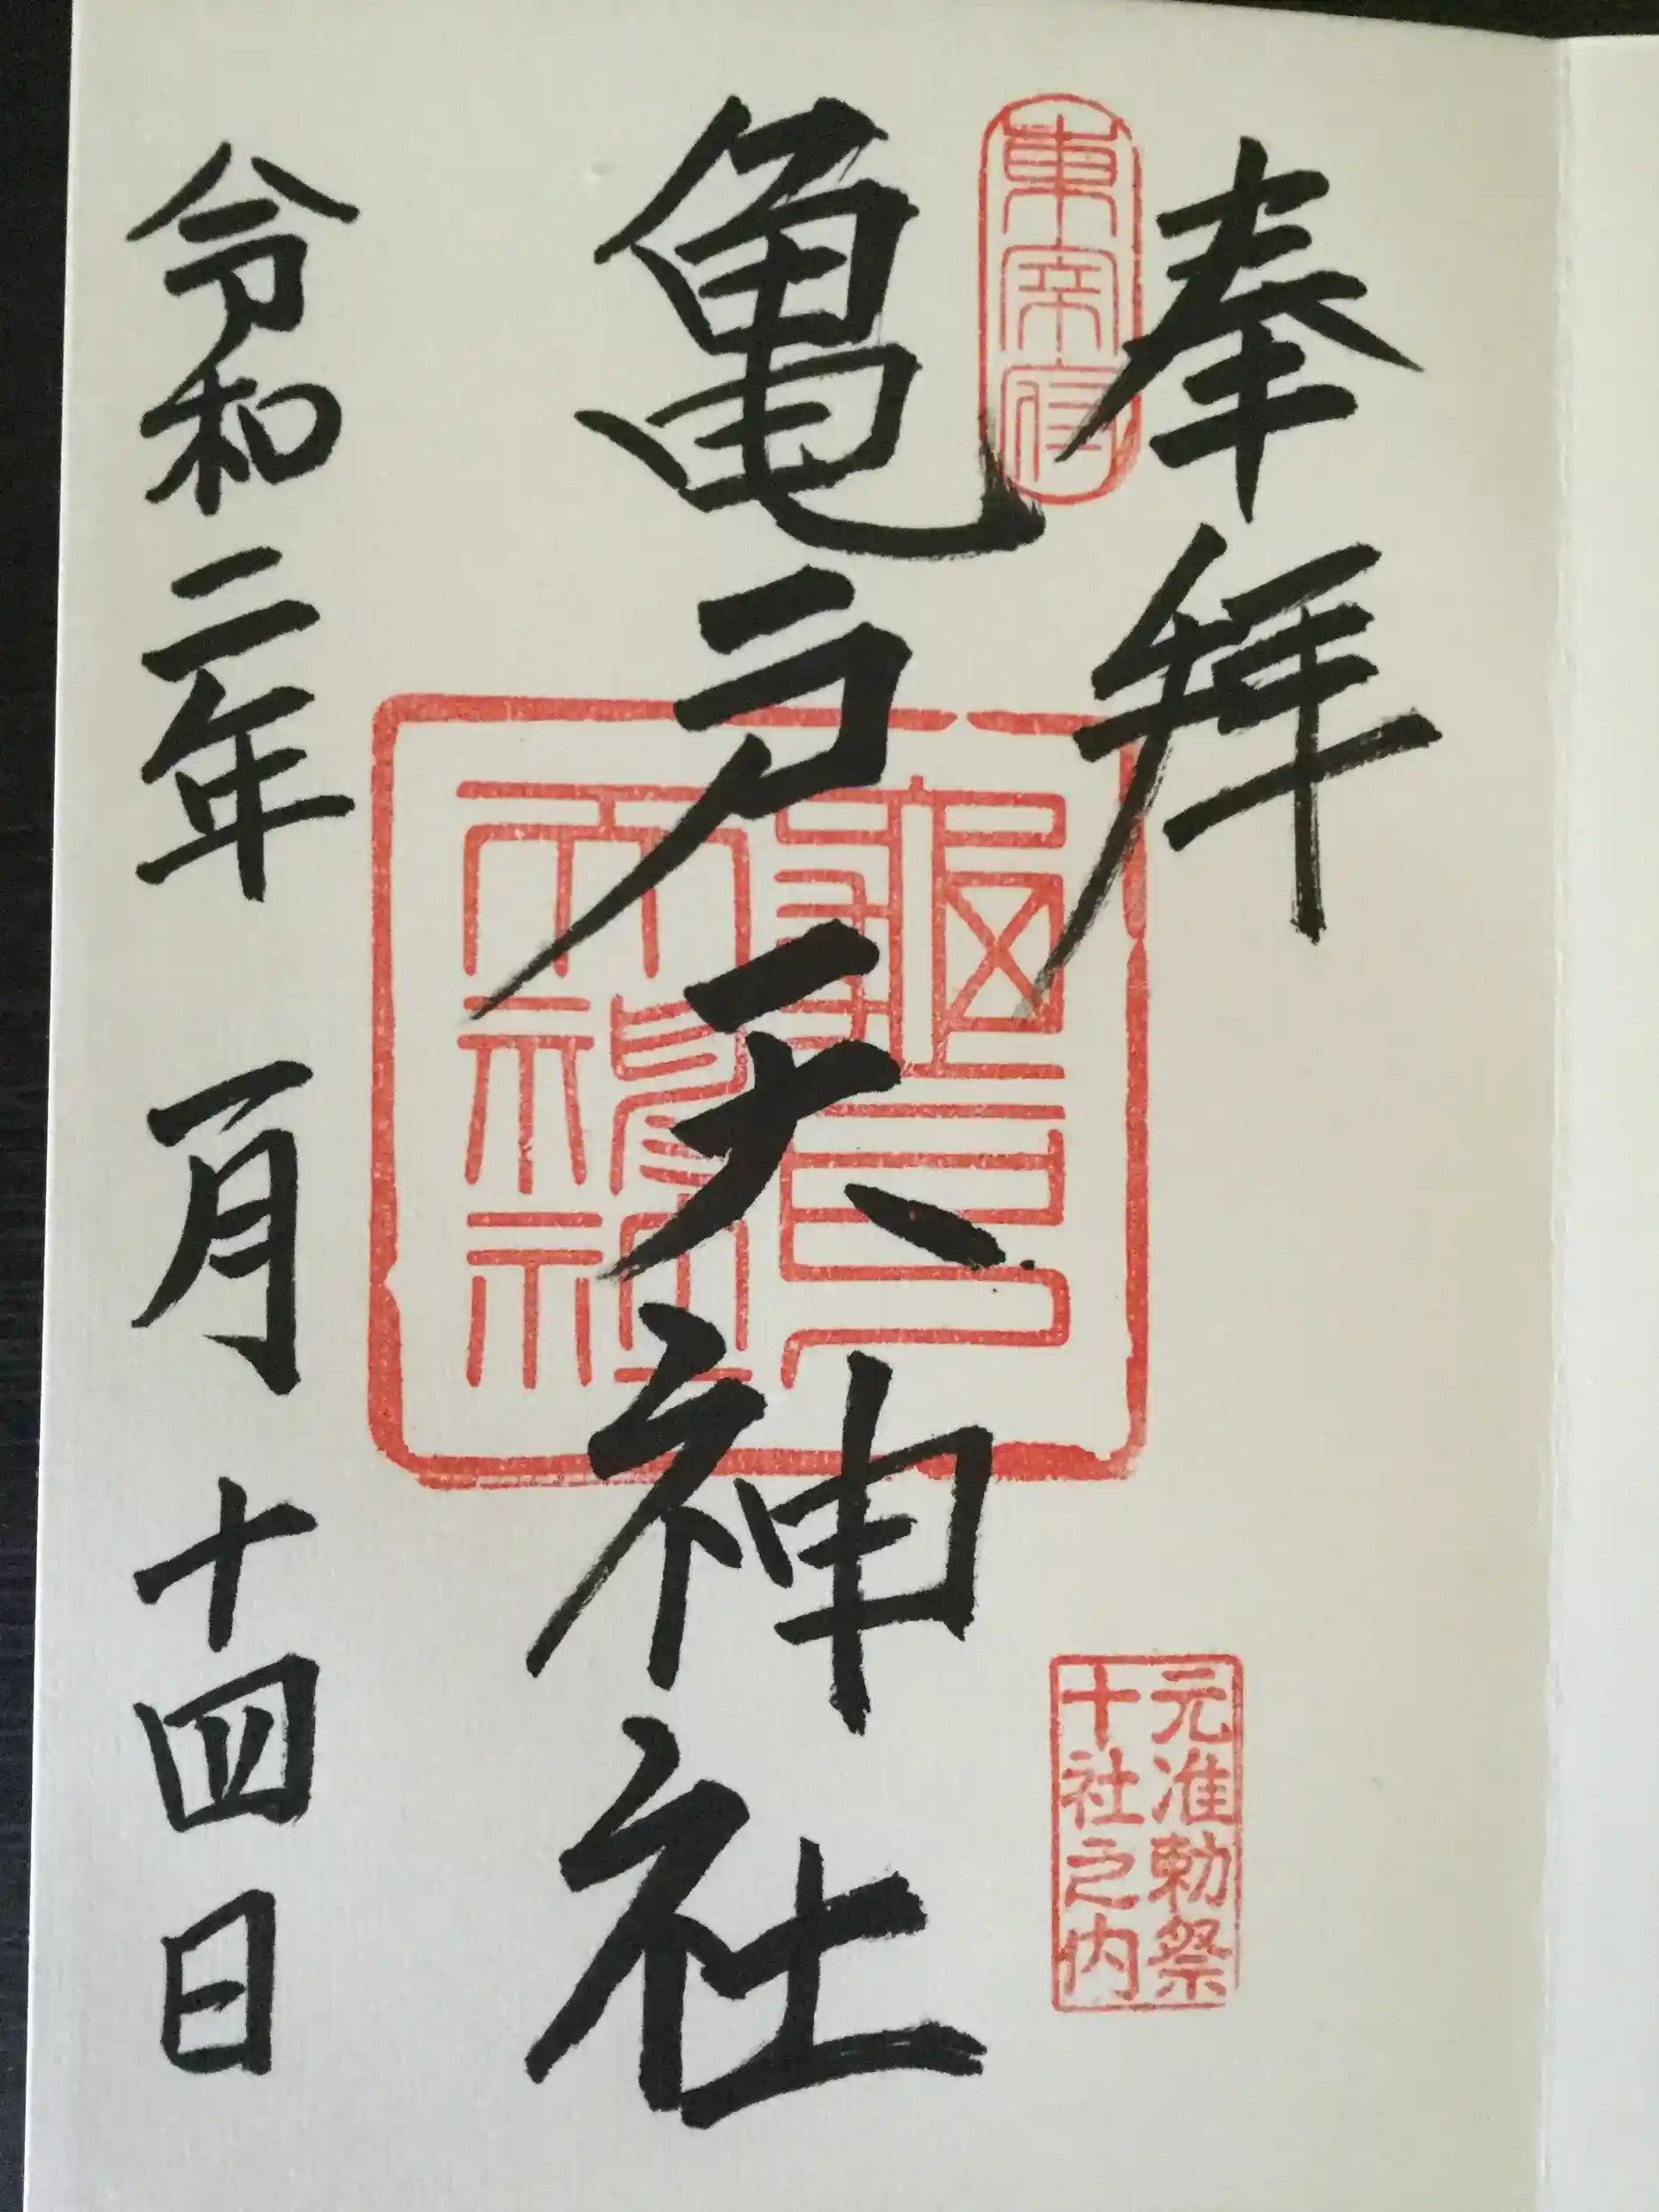 奉拝
東宰府
亀戸天神社
龜戸天神社
元准勅祭
十社之内
令和二年一月十四日